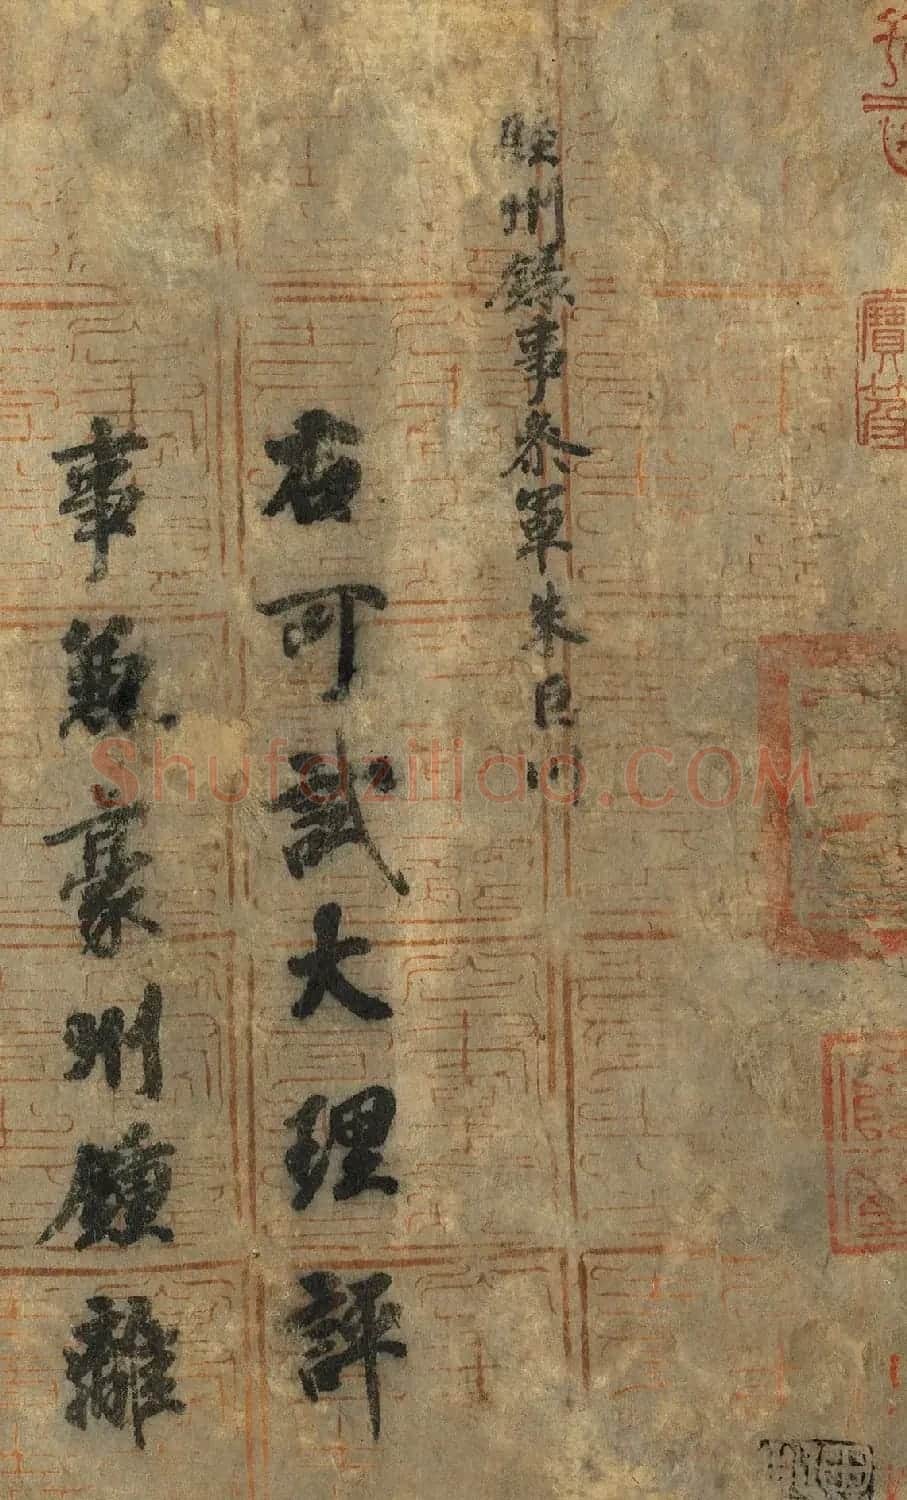 睦州錄事叅軍朱巨川
右可試大理評
事兼豪州鍾離
Shufaziliao.COM